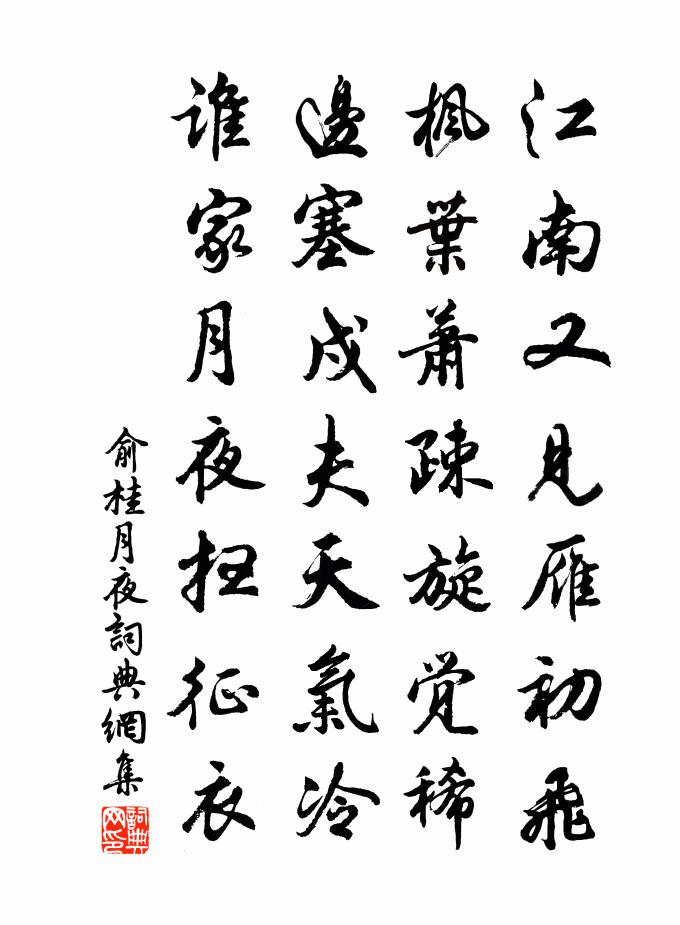 江南又見雁初飛
楓葉蕭疎旋覚稀
邊塞戍夫天氣冷
誰家月夜征衣
俞桂月夜詞典網集
詞典网印